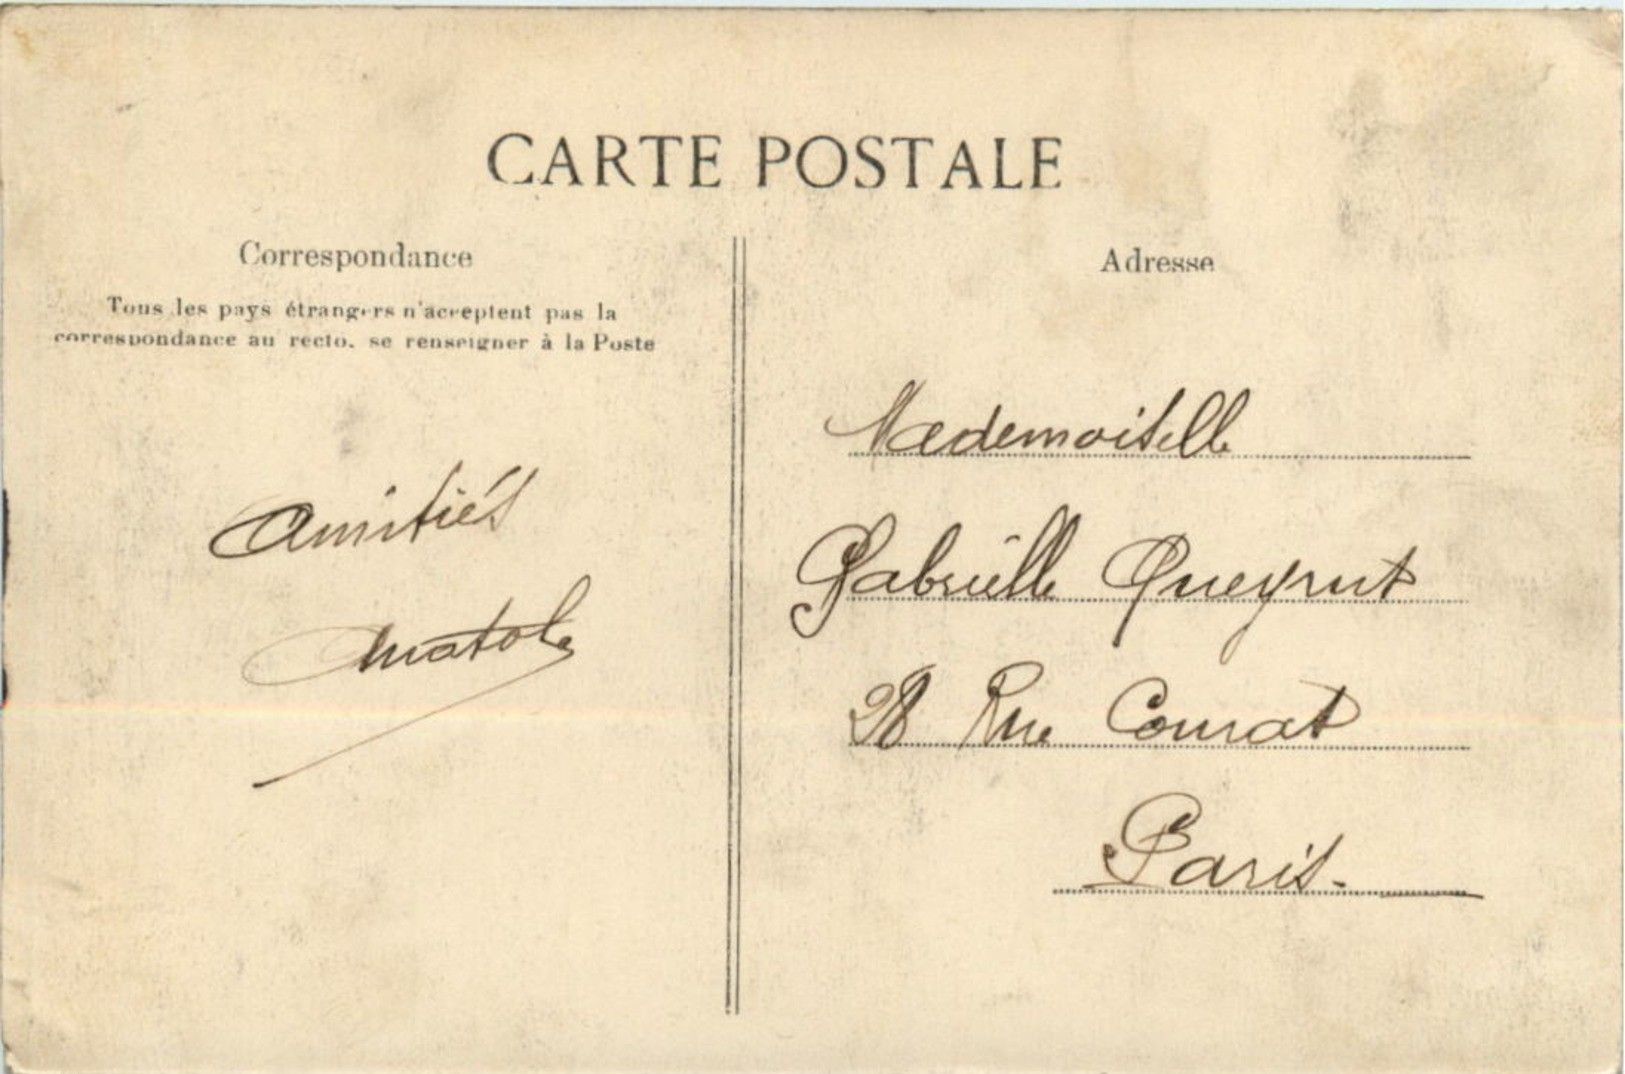 CARTE POSTALE
Correspondance
Tous les pays étrangers n'acceptent pas la
correspondance au recto, se renseigner à la Poste
Amitiés
Anatole
Adresse
Mademoiselle
Gabrielle Queyrut
28 Rue Courat
Paris.